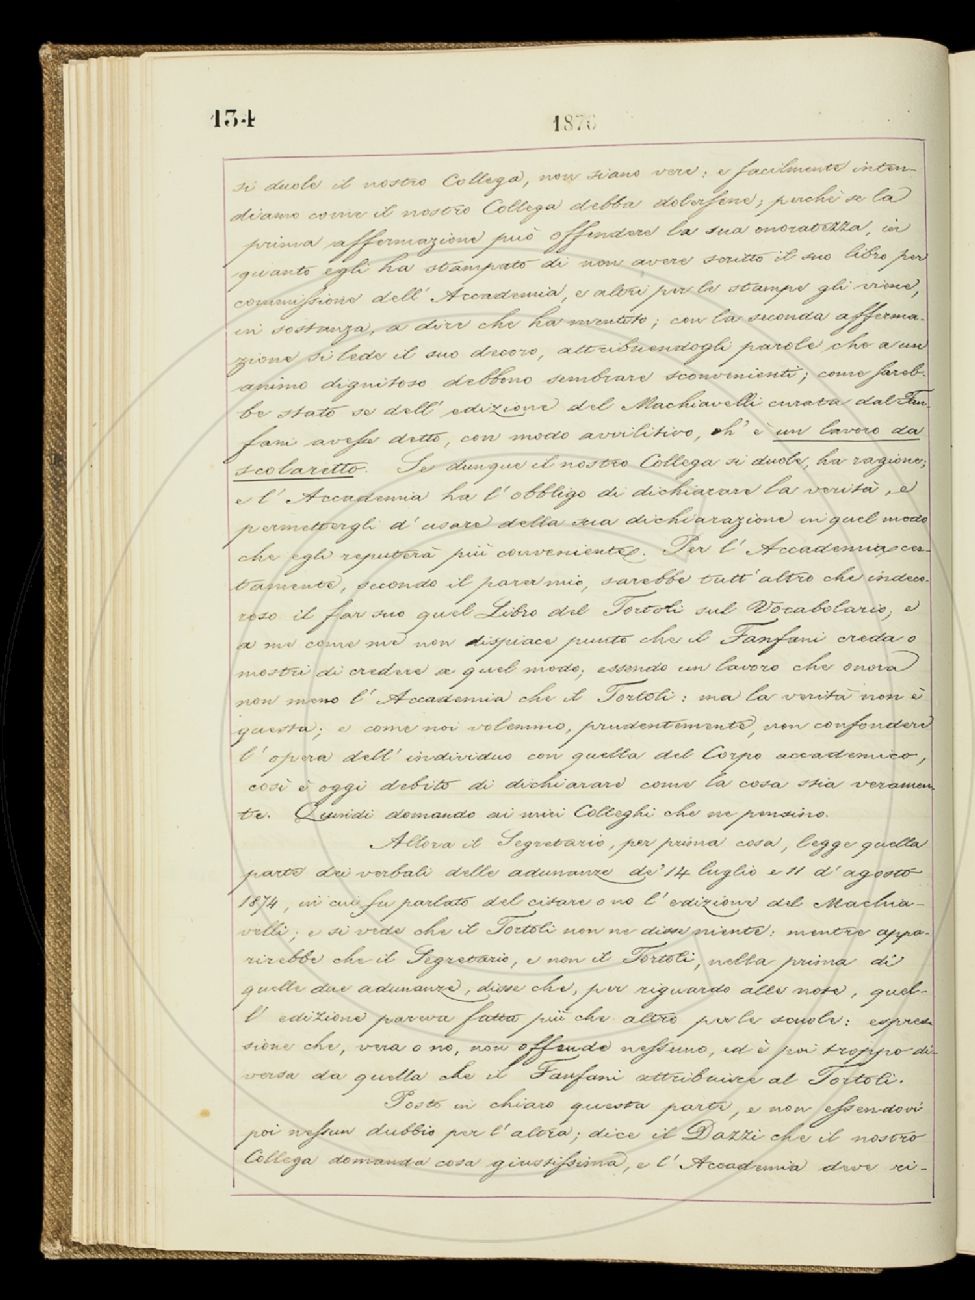 134
1876
si duole il nostro Collega, non siano vere: e facilmente inten-
diamo come il nostro Collega debba dolersene; perchè se la
prima affermazione può offendere la sua onoratezza, in
quanto egli ha stampato di non avere scritto il suo libro per
commissione dell' Accademia, e altri per le stampe gli viene,
in sostanza, a dire che ha mentito; con la seconda afferma-
zione si lede il suo decoro, attribuendogli parole che a un
animo dignitoso debbono sembrare sconvenienti; come sareb-
be stato se dell' edizione del Machiavelli curata dal Fan-
fani avesse detto, con modo avvilitivo, ch' è un lavoro da
scolaretto. Se dunque il nostro Collega si duole, ha ragione;
e l' Accademia ha l' obbligo di dichiarare la verità, e
permettergli d' usare della sua dichiarazione in quel modo
che egli reputerà più conveniente. Per l' Accademia cer-
tamente, secondo il parer mio, sarebbe tutt' altro che indeco-
roso il far suo quel Libro del Tortoli sul Vocabolario; e
a me come me non dispiace punto che il Fanfani creda o
mostri di credere a quel modo, essendo un lavoro che onora
non meno l' Accademia che il Tortoli: ma la verità non è
questa; e come noi volemmo, prudentemente, non confondere
l' opera dell' individuo con quella del Corpo accademico,
così è oggi debito di dichiarare come la cosa stia veramen-
te. Quindi domando ai miei Colleghi che ne pensino.
Allora il Segretario, per prima cosa, legge quella
parte dei verbali delle adunanze de' 14 luglio e 11 d' agosto
1874, in cui fu parlato del citare o no l' edizione del Machia-
velli; e si vede che il Tortoli non ne disse niente: mentre appa-
rirebbe che il Segretario, e non il Tortoli, nella prima di
quelle due adunanze, disse che, per riguardo alle note, quel-
l' edizione pareva fatta più che altro per le scuole: espres-
sione che, vera o no, non offende nessuno, ed è poi troppo di-
versa da quella che il Fanfani attribuisce al Tortoli.
Posto in chiaro questa parte, e non essendovi
poi nessun dubbio per l' altra; dice il Dazzi che il nostro
Collega domanda cosa giustissima, e l' Accademia deve ri-